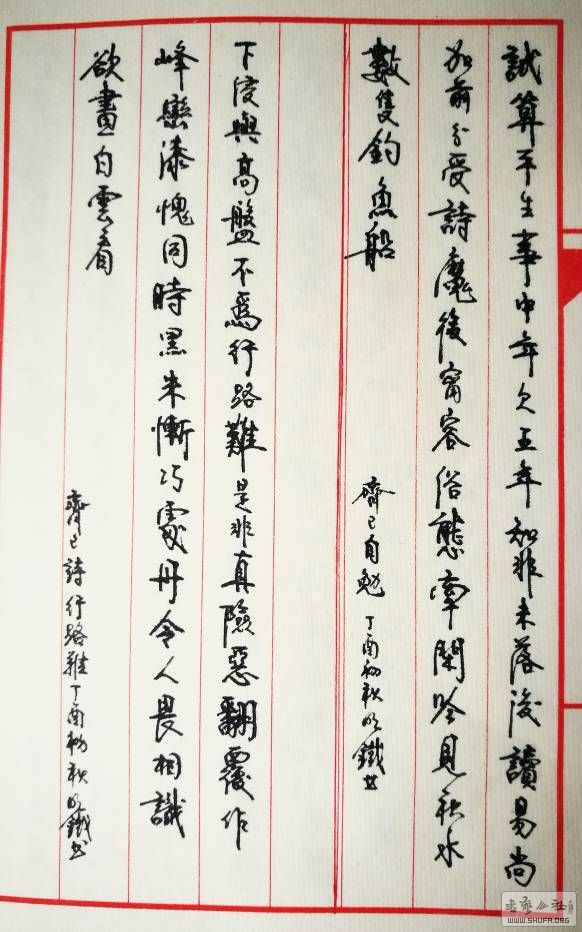 試算平生事中年欠五年知非未落後讀易尚
加前分受詩魔後甯容俗態牽閑吟見秋水
數隻釣魚船
齊己自勉 丁酉初秋鐵書
下浸與高盤不爲行路難是非真險惡翻覆作
峰巒漆愧同時黑朱慚巧處丹令人畏相識
欲畫白雲看
齊己詩行路難丁酉初秋鐵書
書藝公社
WWW.SHUFA.ORG